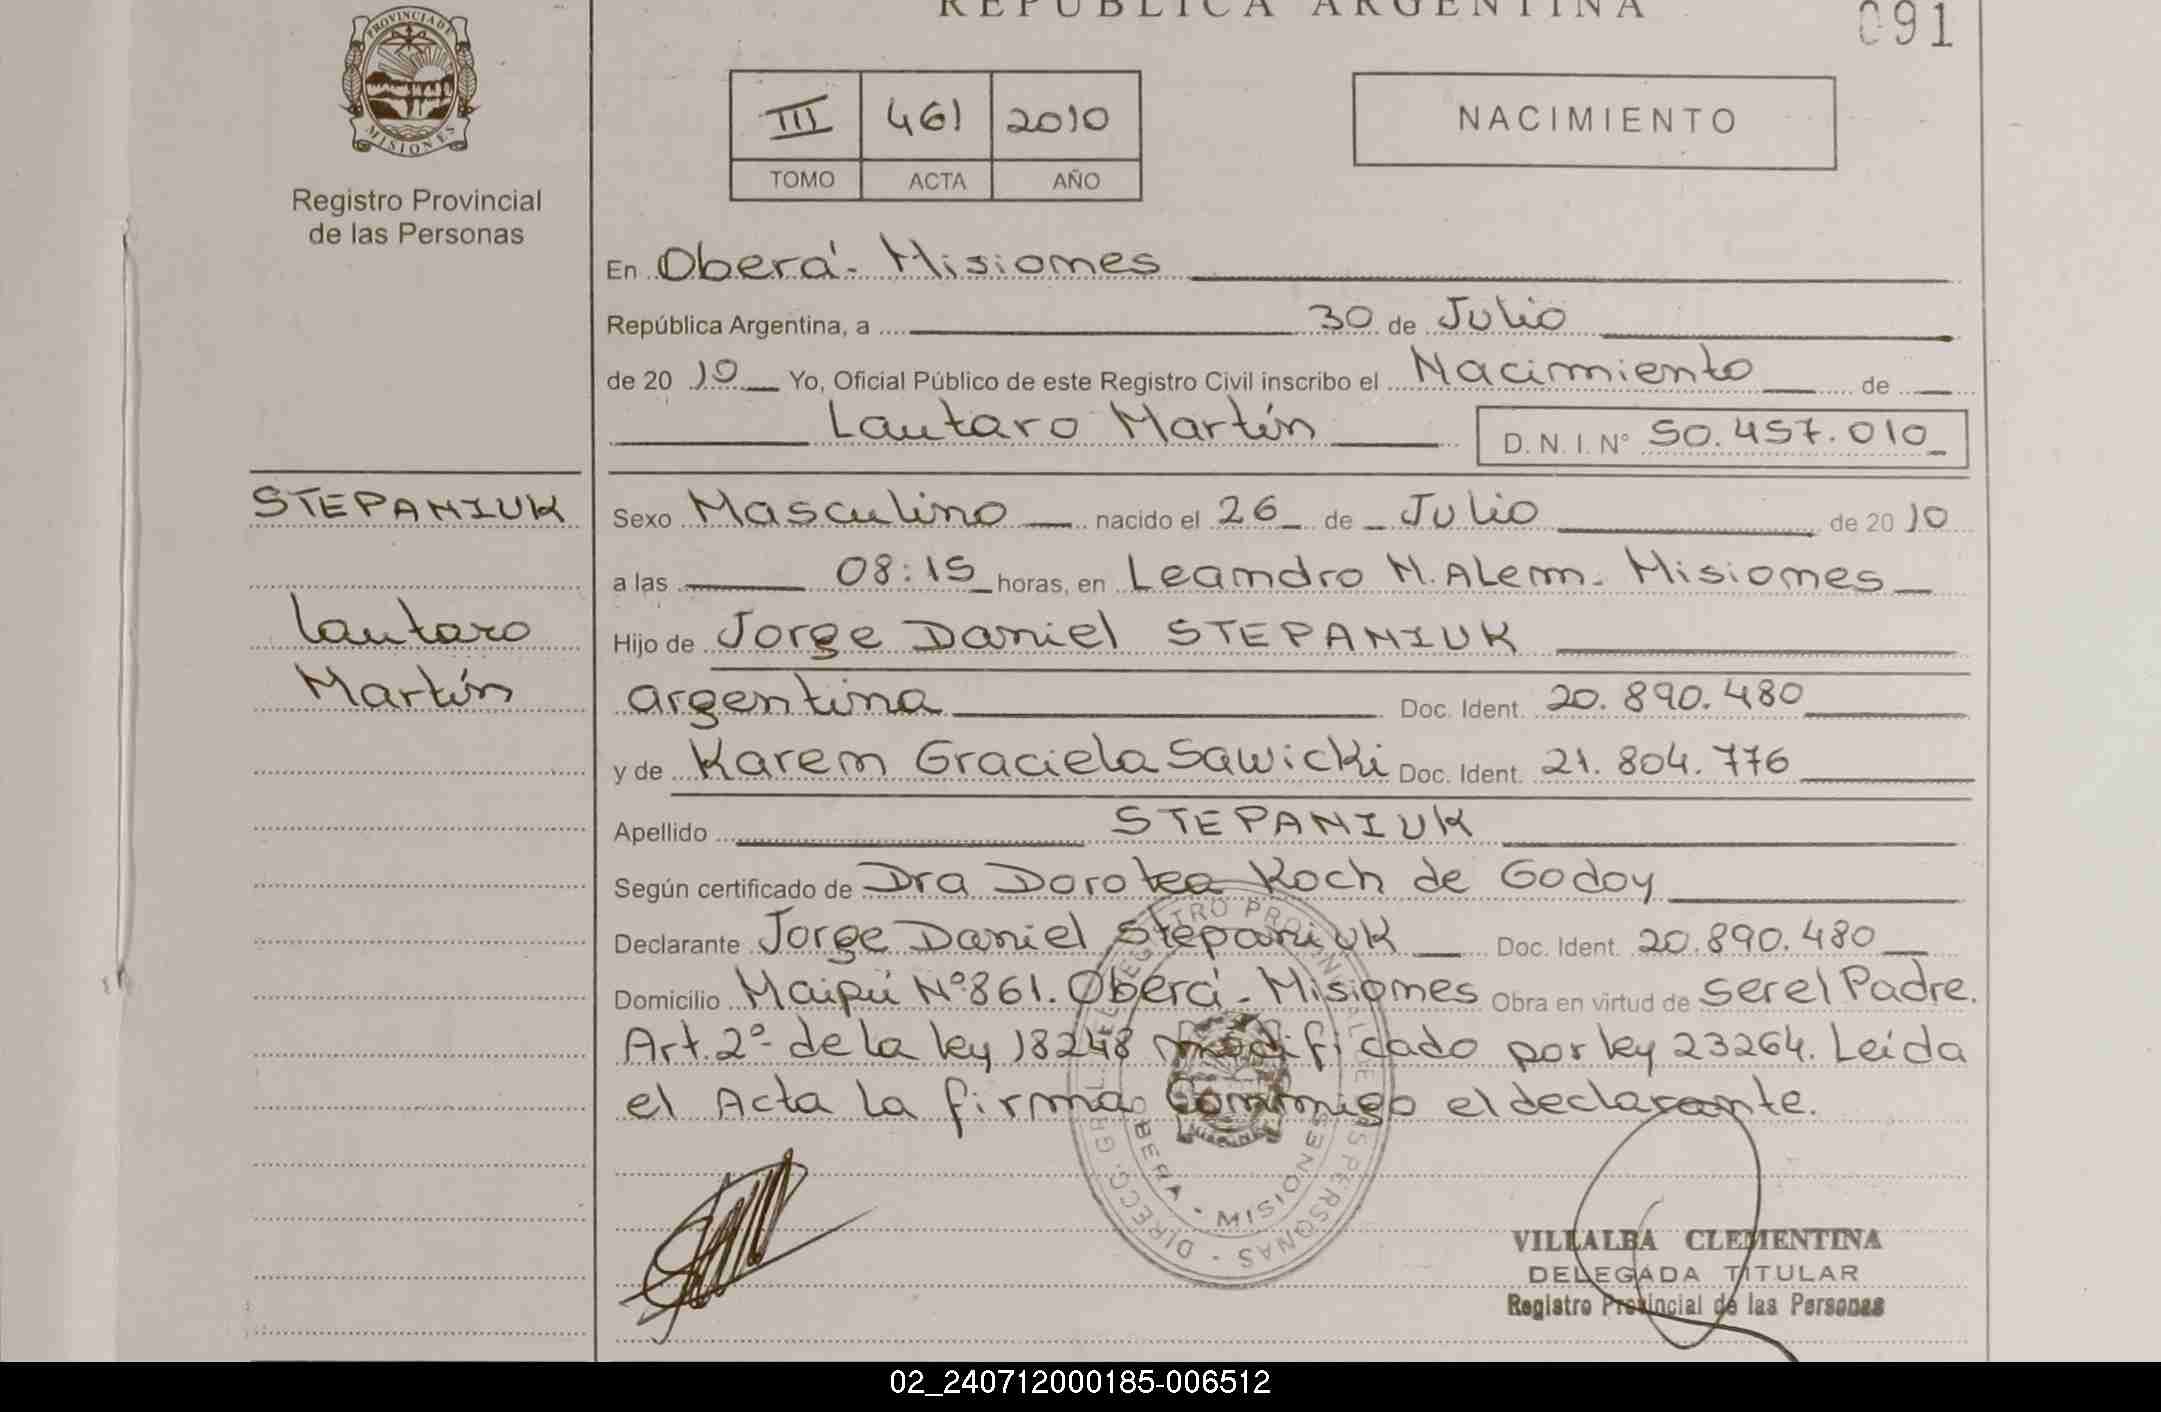 REPUBLICA ARGENTINA
091
PROVINCIA DE
MISIONES
III 461 2010
TOMO ACTA AÑO
NACIMIENTO
Registro Provincial
de las Personas
En Oberá - Misiones
República Argentina, a 30 de Julio
de 20 10 Yo, Oficial Público de este Registro Civil inscribo el Nacimiento de
Lautaro Martín D. N. I. N° 50.457.010
STEPANIUK
Lautaro
Martín
Sexo Masculino nacido el 26 de Julio de 20 10
a las 08:15 horas, en Leandro N. Alem - Misiones
Hijo de Jorge Daniel STEPANIUK
argentina Doc. Ident. 20.890.480
y de Karem Graciela Sawicki Doc. Ident. 21.804.776
Apellido STEPANIUK
Según certificado de Dra Dorotea Koch de Godoy
Declarante Jorge Daniel Stepaniuk Doc. Ident. 20.890.480
Domicilio Maipú N° 861. Oberá - Misiones Obra en virtud de ser el Padre.
Art. 2° de la ley 18248 modificado por ley 23264. Leída
el Acta la firma Conmigo el declarante.
OBERA - MISIONES
VILLALBA CLEMENTINA
DELEGADA TITULAR
Registro Provincial de las Personas
02_240712000185-006512